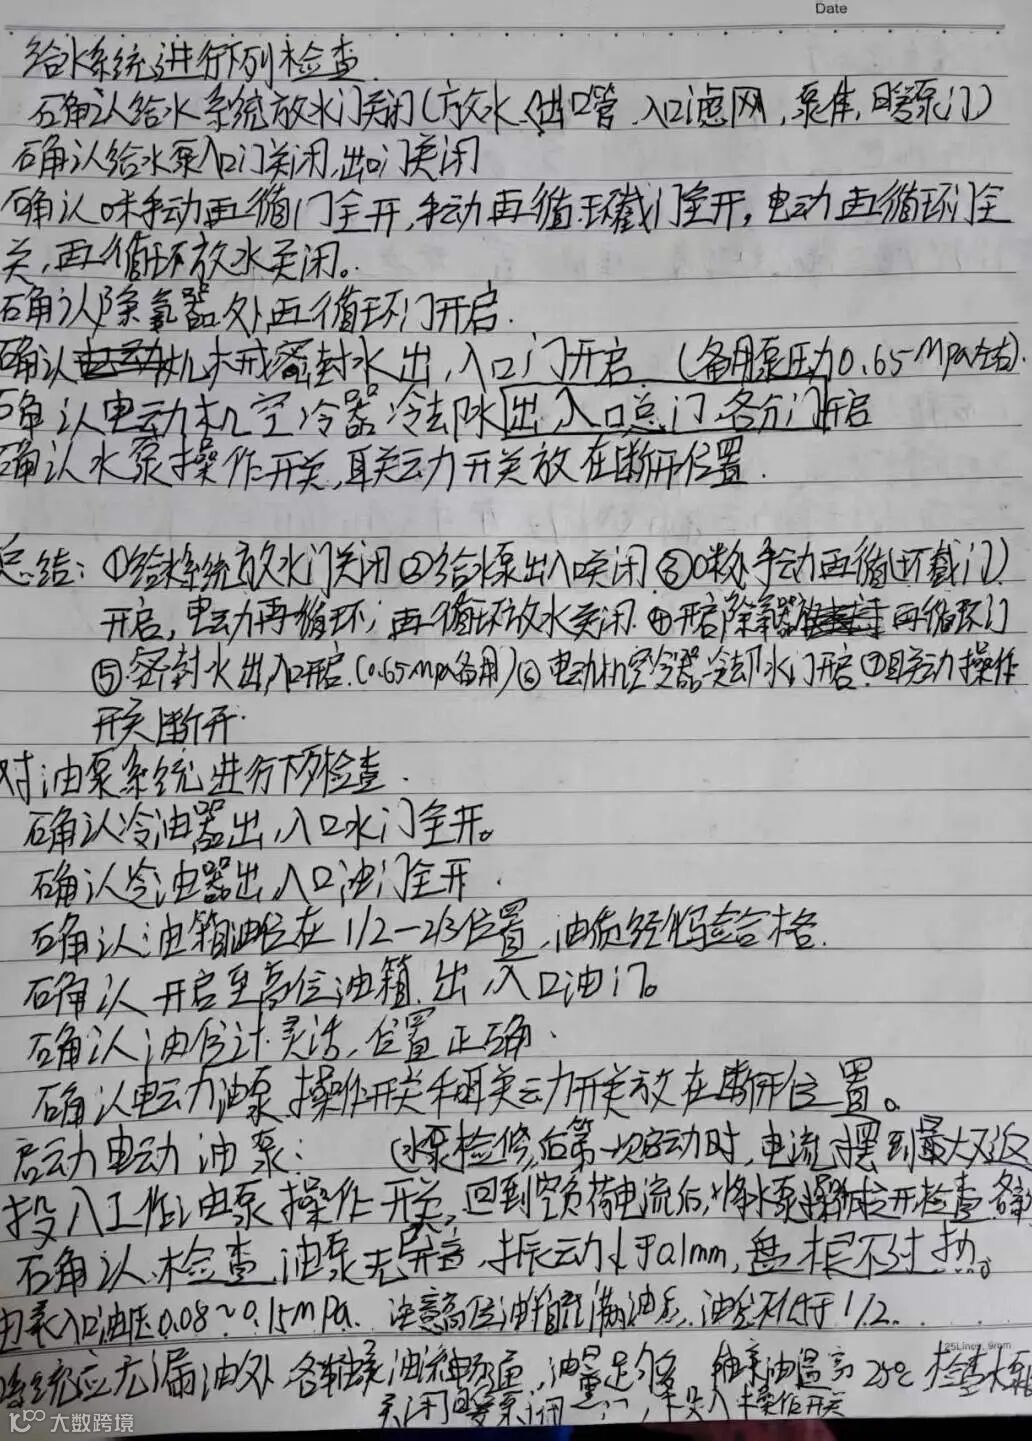 Date
给水系统进行下列检查.
确认给水系统放水门关闭(放水、出口管、入口滤网,泵体,暖泵门)
确认给水泵入口门关闭,出口门关闭
确认 手动再循门全开,手动再循环截门全开,电动再循环门全
关,再循环放水关闭。
确认除氧器处再循环门开启.
确认 机械密封水出,入口门开启 (备用泵压力0.65MPa左右).
确认电动机空冷器冷却水出,入口总门,各分门开启
确认水泵操作开关,联动开关放在断开位置.
总结:①给水系统放水门关闭②给水泵出入口关闭③ 手动再循环截门
开启,电动再循环,再循环放水关闭.④开启除氧器 再循环门
⑤密封水出,入口开启.(0.65MPa备用)⑥电动机空冷器冷却水门开启.⑦联动操作
开关断开.
对油泵系统进行下列检查.
确认冷油器出,入口水门全开。
确认冷油器出,入口油门全开.
确认油箱油位在1/2-2/3位置,油质经化验合格.
确认开启至高位油箱.出,入口油门。
确认油位计灵活,位置正确.
确认电动油泵操作开关和联动开关放在断开位置。
启动电动油泵: (水泵检修后第一次启动时,电流摆到最大又返
投入工作油泵操作开关, 回到空负荷电流后,将水泵操作 拉开检查各部
确认检查油泵无异音,振动小于0.1mm,盘根不过热。
入口油压0.08~0.15MPa. 注意高位油箱 满油后,油位不低于1/2.
系统应无漏油处 各轴承油流畅通,油量足够 轴承油温高25℃ 检查水泵
关闭暖泵 门 ,投入操作开关
25Lines. 9mm
大数跨境